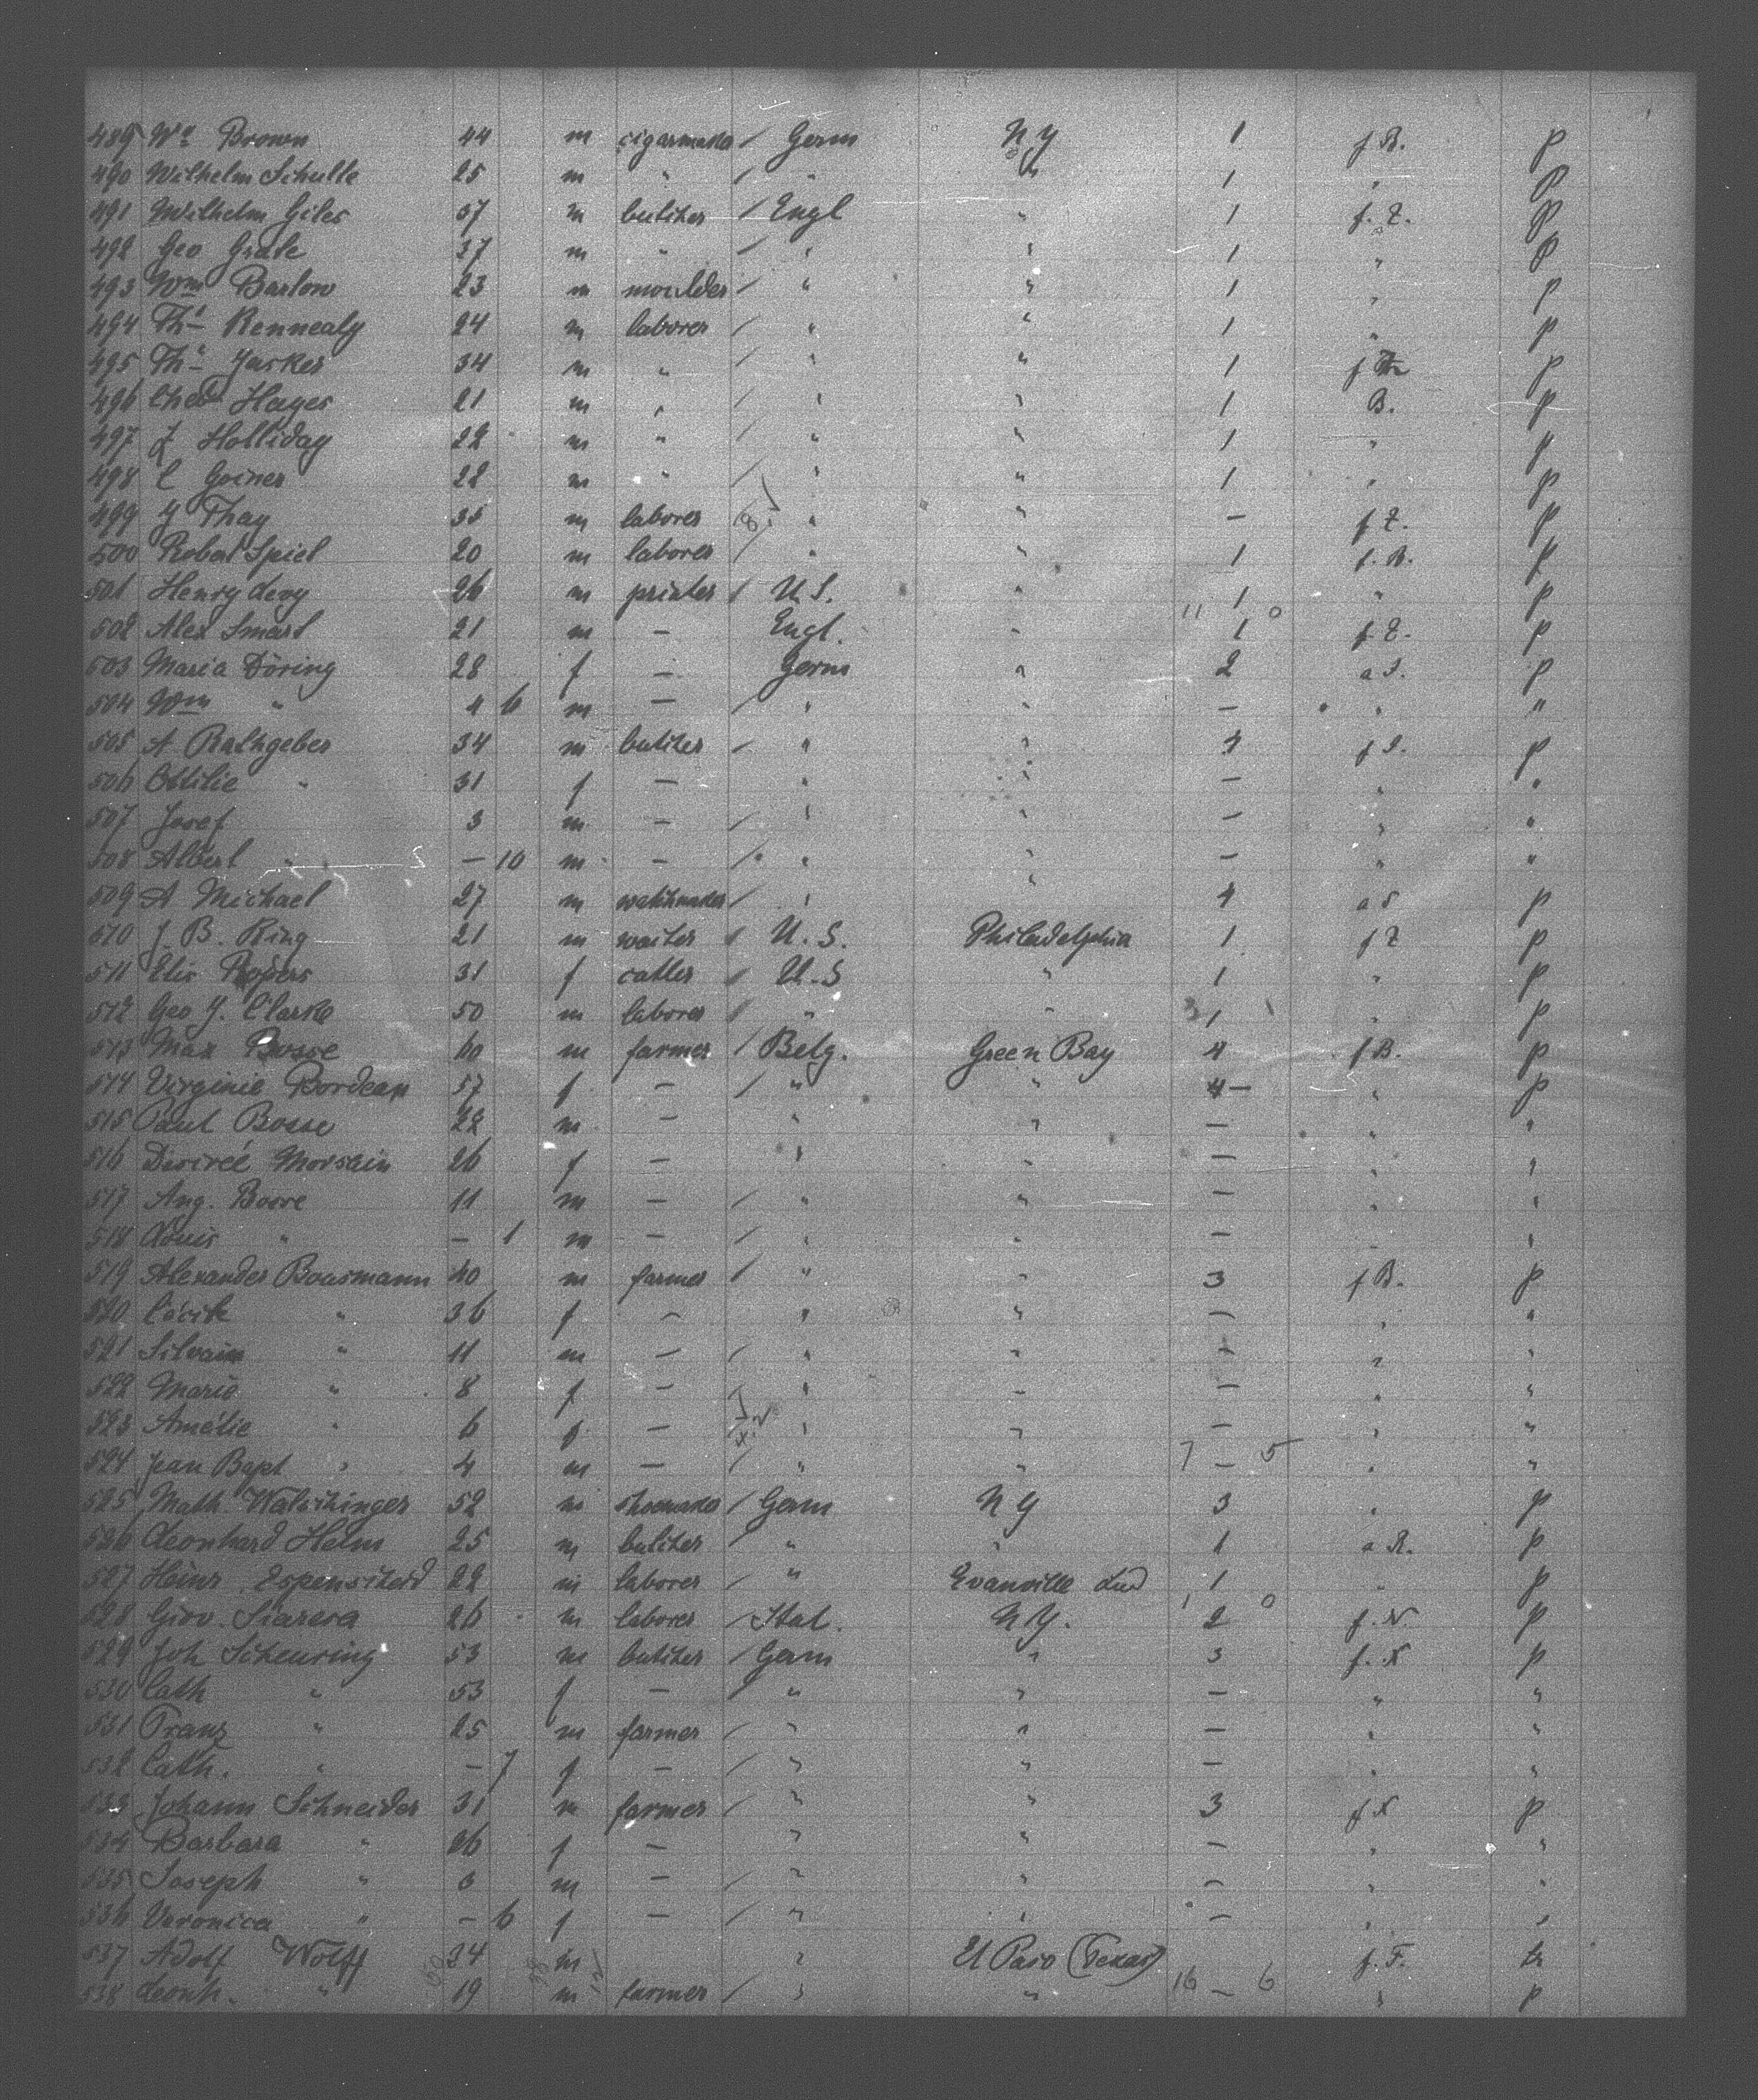 489 Wm Brown 44 m cigarmaker / Germ N Y 1 f B. p
490 Wilhelm Schulle 25 m " / " " 1 " p
491 Wilhelm Giles 57 m butcher / Engl " 1 f. Z. p
492 Geo Grale 37 m " / " " 1 " p
493 Wm Barlow 23 m moulder / " " 1 " p
494 Ths Kennealy 24 m laborer / " " 1 " p
495 Ths Yasker 34 m " / " " 1 f p
496 Ched Hayes 21 m " / " " 1 B. p
497 J Holliday 22 m " / " " 1 " p
498 C Goiner 22 m " / " " 1 " p
499 Y Thay 35 m laborer " " — f Z. p
500 Robert Spiel 20 m laborer / " " 1 f. B. p
501 Henry Levy 26 m printer / U S. " 1 " p
502 Alex Smart 21 m — Engl. " 11 1 0 f. Z. p
503 Maria Döring 28 f — Germ " 2 a S. p
504 Wm " 4 6 m — / " " — " "
505 A Rathgeber 34 m butcher / " " 4 f S. p
506 Ottilie " 31 f — " " — " "
507 Josef 3 m — / " " — " "
508 Albert " — 10 m — / " " — " "
509 A Michael 27 m watchmaker / " " 4 a S p
510 J. B. Ring 21 m waiter / U. S. Philadelphia 1 f Z p
511 Elis Ropers 31 f catler / U. S " 1 " p
512 Geo Y. Clarke 50 m laborer / " " 1 " p
513 Max Bosse 60 m farmer / Belg. Green Bay 4 f B. p
514 Virginie Bordeau 57 f — / " " 4 — " p
515 Paul Bosse 22 m — " " — " "
516 Desireé Morsain 26 f — " " — " "
517 Aug. Bosse 11 m — / " " — " "
518 Louis " — 1 m — / " " — " "
519 Alexander Bousmann 40 m farmer / " " 3 f B. p
520 Cécile " 36 f — " " — " "
521 Silvain " 11 m — / " " — " "
522 Marie " 8 f — " " — " "
523 Amélie " 6 f — " " — " "
524 Jean Bapt " 4 m — / " " 7 — 5 " "
525 Math. Walschinger 52 m shoemaker / Germ N Y 3 " p
526 Leonhard Helm 25 m butcher / " " 1 a R. p
527 Heinr. Espenscheid 22 m laborer / " Evanville Ind 1 " p
528 Giov. Siarera 26 m laborer / Ital. N Y. 1 2 0 f. N. p
529 Joh Scheuring 53 m butcher / Germ " 3 f. X p
530 Cath " 53 f — / " " — " "
531 Franz " 25 m farmer / " " — " "
532 Cath. " — 7 f — / " " — " "
533 Johann Schneider 31 m farmer / " " 3 f X p
534 Barbara " 26 f — " " — " "
535 Joseph " 6 m — / " " — " "
536 Veronica " — 6 f — / " " — " "
537 Adolf Wolff 34 m " El Paso (Texas) f. F. tr
538 Leonh. " 19 m farmer / " " 16 — 6 " p